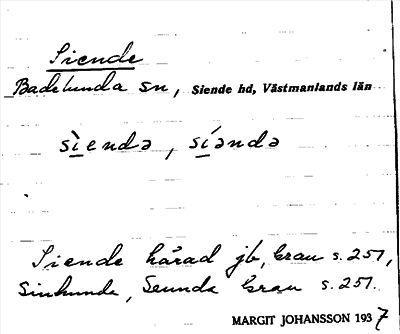 Siende
Badelunda sn, Siende hd, Västmanlands län
sìendə, síəndə
Siende härad jb, Grau s. 257,
Simhunde, Seunda Grau s. 257.
MARGIT JOHANSSON 1937